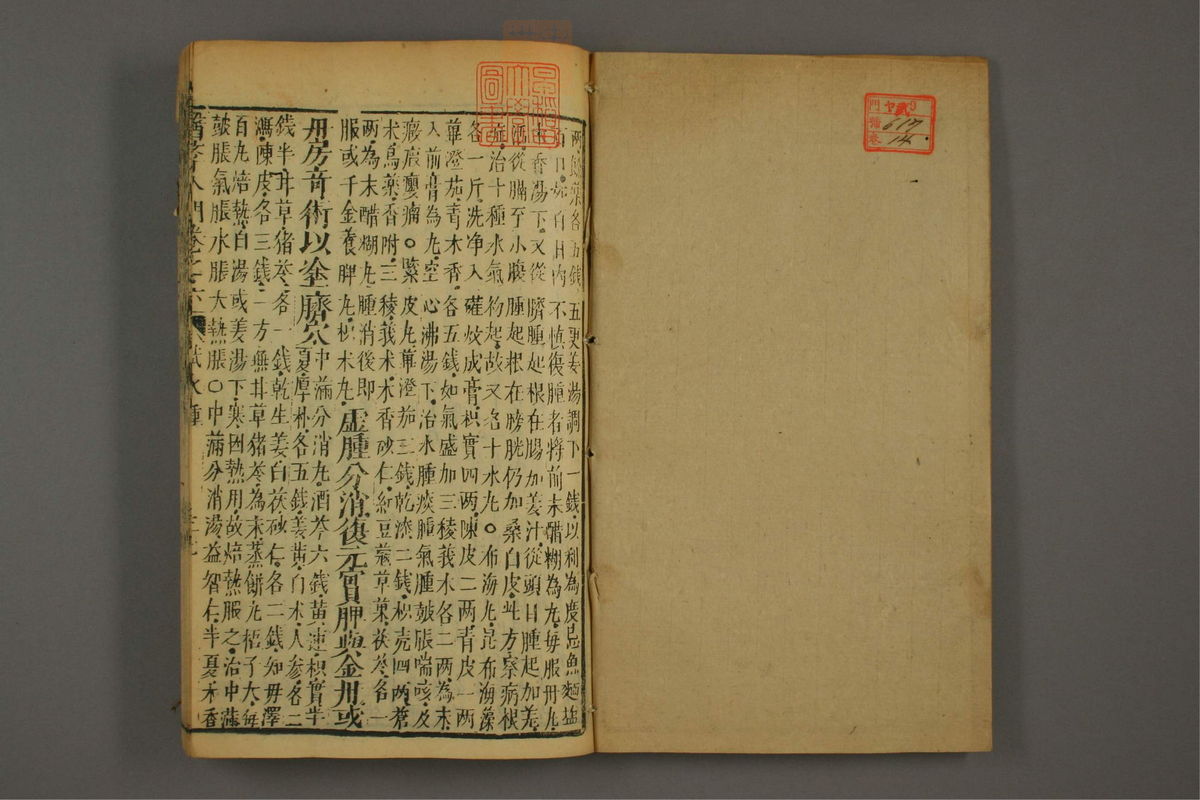 兩餘藥各五錢五更姜湯調下一錢以利為度忌魚麵塩
百日如百日內不慎復腫者將前末醋糊為丸每服卅丸
木香湯下又從臍腫起根在腸加姜汁從頭目腫起加羗
活從膈至小腹腫起根在膀胱仍加桑白皮此方察病根
治十種水氣初起故又名十水丸○布海丸昆布海藻
各一斤洗净入礶炆成膏枳實四兩陳皮二兩青皮一兩
蓽澄茄青木香各五錢如氣盛加三稜莪朮各二兩為末
入前膏為丸空心沸湯下治水腫痰腫氣腫皷脹喘咳及
癥瘕癭瘤○ 皮丸蓽澄茄三錢乾漆二錢枳壳四兩蒼
朮烏藥香附三稜莪朮木香砂仁紅豆蔻草菓茯苓各一
兩為末醋糊丸腫消後即虛腫分消復元實脾與金丹或
服或千金養脾丸枳朮丸
丹房奇術以塗臍穴中滿分消丸酒芩六錢黃連枳實半
夏厚朴各五錢姜黃白朮人參各二
錢半甘草猪苓各一錢乾生姜白茯砂仁各二錢知毋澤
瀉陳皮各三錢一方無甘草猪苓為末蒸餅丸梧子大每
百丸焙熱白湯或姜湯下寒因熱用故焙熱服之治中滿
皷脹氣脹水脹大熱脹○中滿分消湯益智仁半夏木香
醫學入門卷之六 水腫
9
617
14